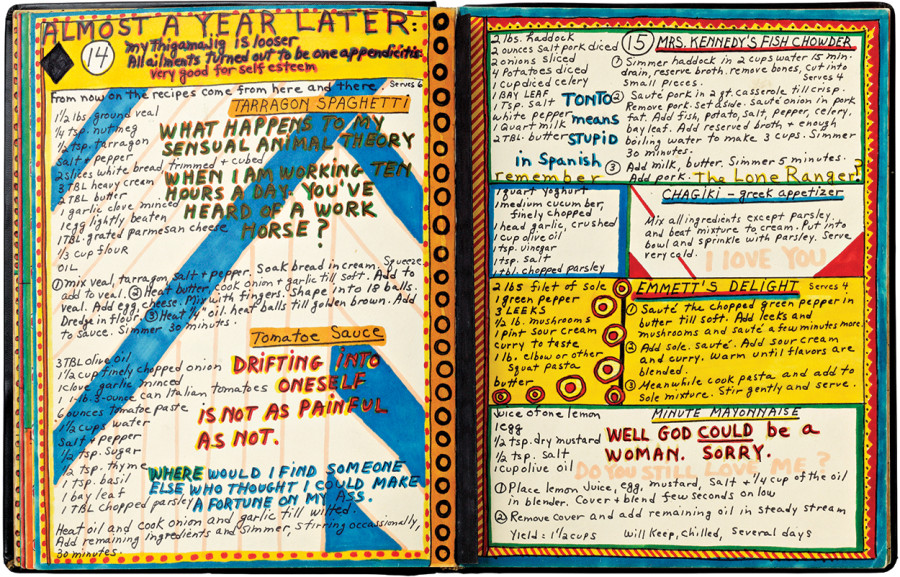 ALMOST A YEAR LATER:
14
My Thigamajig is looser
All ailments Turned out to be one appendicitis
very good for self esteem
From now on the recipes come from here and there
Serves 6
TARRAGON SPAGHETTI
1 1/2 lbs ground veal
1/4 tsp. nutmeg
1/2 tsp. tarragon
Salt + pepper
2 slices white bread, trimmed + cubed
3 TBL heavy cream
2 TBL butter
1 garlic clove minced
1 egg lightly beaten
1 TBL. grated parmesan cheese
1/3 cup flour
OIL
WHAT HAPPENS TO MY
SENSUAL ANIMAL THEORY
WHEN I AM WORKING TEN
HOURS A DAY. YOU'VE
HEARD OF A WORK
HORSE?
① mix veal, tarragon, salt + pepper. Soak bread in cream, Squeeze
add to veal. ② Heat butter, cook onion + garlic till soft. Add to
veal. Add egg, cheese. Mix with fingers. Shape into 18 balls.
Dredge in flour. ③ Heat 1/4" oil. heat balls till golden brown. Add
to sauce. Simmer 30 minutes.
Tomatoe Sauce
3 TBL olive oil
1 1/2 cup finely chopped onion
1 clove garlic minced
1 lb. 3-ounce can Italian tomatoes
6 ounces tomatoe paste
1 1/2 cups water
Salt + pepper
1/2 tsp. sugar
1/2 tsp. thyme
1 tsp. basil
1 bay leaf
1 TBL chopped parsley
DRIFTING INTO
ONESELF
IS NOT AS PAINFUL
AS NOT.
WHERE WOULD I FIND SOMEONE
ELSE WHO THOUGHT I COULD MAKE
A FORTUNE ON MY ASS.
Heat oil and cook onion and garlic till wilted.
Add remaining ingredients and simmer, stirring occassionally,
30 minutes.
15
MRS. KENNEDY'S FISH CHOWDER
2 lbs. haddock
2 ounces salt pork diced
2 onions sliced
4 Potatoes diced
1 cup diced celery
1 BAY LEAF
1 Tsp. salt
white pepper
1 Quart milk
2 TBL butter
① Simmer haddock in 2 cups water 15 min.
drain, reserve broth. remove bones, cut into
small pieces.
Serves 4
② Sauté pork in 2 qt. casserole till crisp.
Remove pork. set aside. sauté onion in pork
fat. Add fish, potato, salt, pepper, celery,
bay leaf. Add reserved broth + enough
boiling water to make 3 cups. Simmer
30 minutes.
③ Add milk, butter. Simmer 5 minutes.
Add pork.
TONTO
means
STUPID
in Spanish
remember The Lone Ranger?
CHAGIKI - greek appetizer
1 quart yoghurt
1 medium cucumber,
finely chopped
1 head garlic, crushed
1 cup olive oil
1 tsp. vinegar
1 tsp. salt
1 tbl. chopped parsley
Mix all ingredients except parsley
and beat mixture to cream. Put into
bowl and sprinkle with parsley. Serve
very cold.
I LOVE YOU
EMMETT'S DELIGHT
Serves 4
2 lbs filet of sole
1 green pepper
3 LEEKS
1/2 lb. mushrooms
1 pint Sour cream
curry to taste
1 lb. elbow or other
Squat pasta
butter
① Sauté the chopped green pepper in
butter till soft. Add leeks and
mushrooms and sauté a few minutes more.
② Add sole. sauté. Add sour cream
and curry. Warm until flavors are
blended.
③ Meanwhile cook pasta and add to
Sole mixture. Stir gently and serve.
MINUTE MAYONNAISE
Juice of one lemon
1 egg
1/2 tsp. dry mustard
1/2 tsp. salt
1 cup olive oil
WELL GOD COULD be a
WOMAN. SORRY.
DO YOU STILL LOVE ME?
① Place lemon juice, egg, mustard, salt + 1/4 cup of the oil
in blender. Cover + blend few seconds on low
② Remove cover and add remaining oil in steady stream
Yield: 1 1/2 cups Will Keep, chilled, Several days